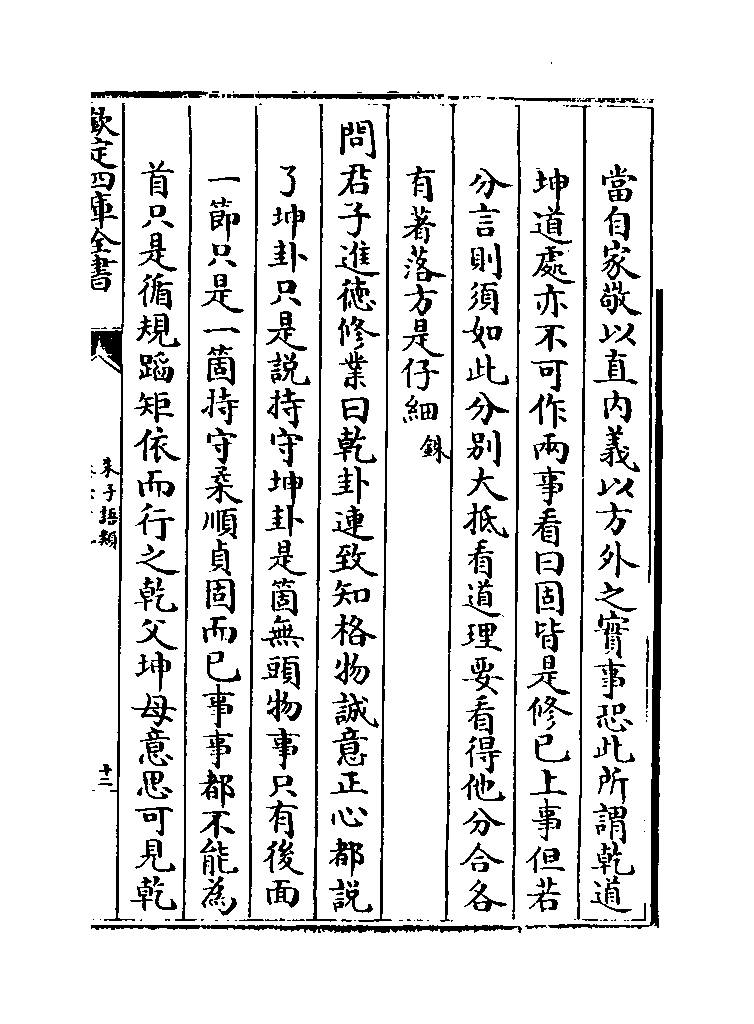 當自家敬以直内義以方外之實事恐此所謂乾道
坤道處亦不可作兩事看曰固皆是修已上事但若
分言則須如此分别大抵看道理要看得他分合各
有著落方是仔細銖
問君子進徳修業曰乾卦連致知格物誠意正心都說
了坤卦只是説持守坤卦是箇無頭物事只有後面
一節只是一箇持守柔順貞固而已事事都不能為
首只是循規蹈矩依而行之乾父坤母意思可見乾
欽定四庫全書
朱子語類
十二